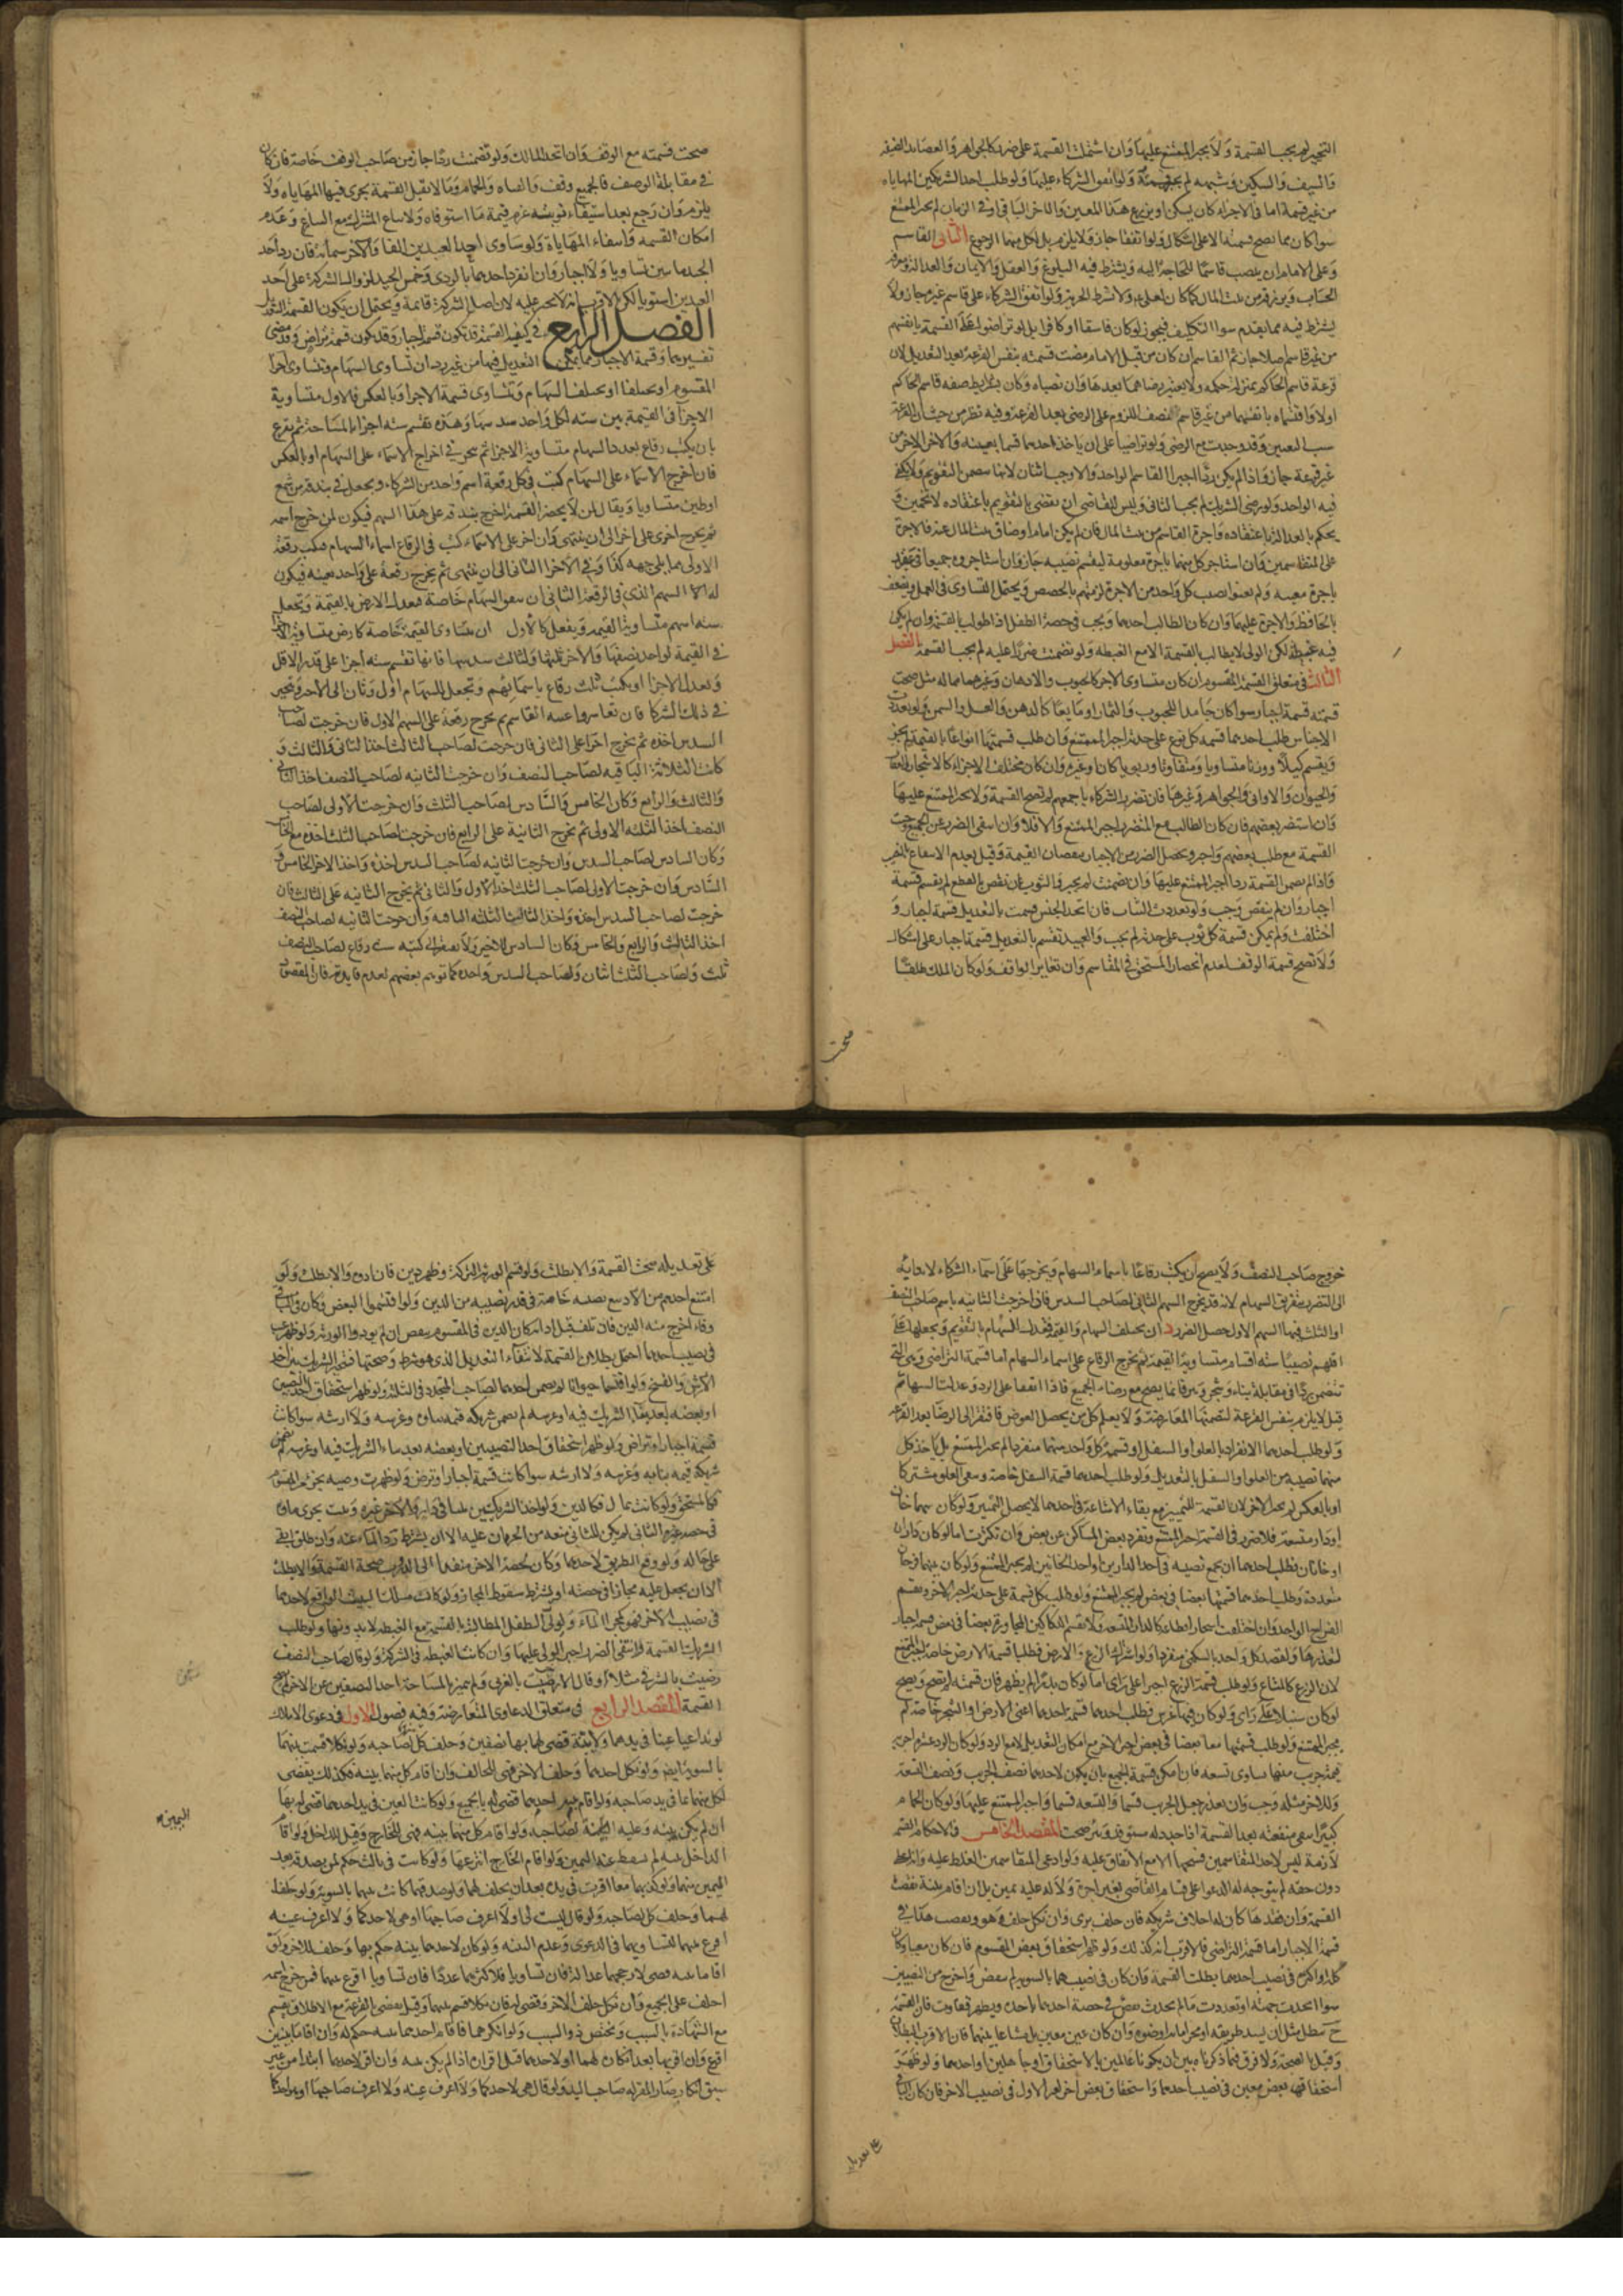 وَلا يجبر الممتنع عليها وَان اشتملت القسمة على ضرر كالجواهر
وَالسيف وَالسكين وَشبهه لم وَلو طلب احد الشريكين المهاياه
من غير قسمة اما فى الاجزاء كان يسكن او يزرع هذا المعين وَالاخر الباقى او فى الزمان لم يجبر الممتنع
سواء كان مما يصح قسمته الا على اشكال وَلو اتفقا جاز وَلا يلزم بل لكل منهما الرجوع الثانى القاسم
وَعلى الامام ان ينصب قاسمًا للحاجة اليه وَيشترط فيه البلوغ وَالعقل وَالايمان وَالعدالة
الحساب وَيرزقه من بيت المال وَلا تشترط الحرية وَلو اتفق الشركاء على قاسم غيره جاز وَلا
يشترط فيه مما تقدم سوى التكليف فيجوز لو كان فاسقا او كافرا بل لو تراضوا على القسمة بانفسهم
من غير قاسم اصلا جاز ثم القاسم ان كان من قبل الامام مضت قسمته بنفس القرعة بعد التعديل لان
قرعة قاسم الحاكم بمنزلة حكمه وَلا يعتبر رضاهما بعدها وَان نصباه وَكان بشرايط صفة قاسم الحاكم
من غير قاسم اللزوم على الرضى بعد القرعة وفيه نظر من حيث ان القرعة
سبب التعيين وَقد وجدت مع الرضى وَلو تراضيا على ان ياخذ احدهما قسما بعينه وَالاخر الاخر من
غير قرعة جاز وَاذا لم يكن ردًّا اجزا القاسم الواحد وَالا وجب اثنان لانها تتضمن التقويم وَلا يكفى
فيه الواحد وَلو رضى الشريك لم يجب الثانى وَليس للقاضى ان يقضى بالتقويم باعتقاده
يحكم بالعدالة باعتقاده وَاجرة القاسم من بيت المال فان لم يكن امام او ضاق بيت المال عنه فالاجرة
على المتقاسمين فان استاجر كل منهما باجرة معلومة ليقسم نصيبه جاز وَان استاجروه جميعا فى عقد
باجرة معينه وَلم يعينوا نصيب كل واحد من الاجرة لزمتهم بالحصص وَيحتمل التساوى
بالحافظ وَالاجرة عليهما وَان كان الطالب احدهما وَيجب فى حصة الطفل اذا طولب بالقسمة وان لم يكن
فيه غبطة لكن الولى لا يطالب بالقسمة الا مع الغبطه وَلو تضمنت ضررًا عليه لم يجب القسمة الفصل
الثالث فى متعلق القسمة المقسوم ان كان متساوى الاجزا كالحبوب والادهان وَغيرهما مما له مثل صحت
قسمته قسمة اجبار سوا كان جامدا كالحبوب وَالثمار او مايعًا كالدهن وَالعسل والسمن وَلو تعددت
الاجناس طلب احدهما قسمة كل نوع على حدته اجبر الممتنع وَان طلب قسمتها انواعًا بالقيمة لم يجبر
وَيقسم كيلًا ووزنا متساويا وَمتفاوتا ربويا كان او غيره وَان كان مختلف الاجزاء كالاشجار
وَالحيوان وَالاوانى وَالجواهر وَغيرها فان تضرر الشركاء باجمعهم لم تصح القسمة وَلا يجبر الممتنع عليها
وَان استضر بعضهم فان كان الطالب هو المتضرر اجبر الممتنع وَالا فلا وَان انتفى الضرر عن الجميع وجبت
القسمة مع طلب بعضهم وَاجبر وَيحصل الضرر من الاجبار بنقصان القيمة وَقيل بعدم الانتفاع
وَاذا لم تتضمن القسمة ردا اجبر الممتنع عليها وَان تضمنت لم يجبر فالثوب ان نقص بالقطع لم يقسم قسمة
اجبار وَان لم ينقص وَجب وَلو تعددت الثياب فان اتحد الجنس قسمت بالتعديل قسمة اجبار وَ
اختلفت وَلم يمكن قسمة كل ثوب على حدته لم يجب وَالعبيد تقسم بالتعديل قسمة اجبار على اشكال
وَلا تصح قسمة الوقف لعدم انحصار المستحق فى المقاسم وَان تغاير الواقف وَلو كان الملك طلقًا
صحت
صحت قسمته مع الوقف وَان اتحد المالك وَلو تضمنت ردًّا جاز من صاحب الوقف خاصة فان كان
فى مقابلة الوصف فالجميع وقف وَالقناه وَالحمام وَما لا تقبل القسمة يجرى فيها المهاياه وَلا
يلزم وَان رَجع بعد استيفاء نوبته غرم قيمة ما استوفاه وَلا يباع المشترك مع التنازع وَعدم
امكان القسمه وَانتفاء المهاياة وَلو ساوى احد العبدين الفا وَالاخر ستمائة فان رد اخذ
تساويا وَلا اجبار وَان انفرد احدهما بالردى وَخمس الجيد ليزول الشركة على احد
العبدين استويا لكن الاقرب انه لا يجبر عليه لان اصل الشركة قائمة وَيحتمل ان يكون القسمة
الفصل الرابع فى كيفية القسمة قد تكون قسمة اجبار وَقد تكون قسمة تراض وَقد مضى
تفسيرهما وَقسمة الاجبار مما يمكن التعديل فيها من غير رد ان تساوى السهام وتتساوى اجزا
المقسوم او يختلفا او يختلف السهام وَتتساوى قسمة الاجزا وَبالعكس فالاول متساوية
الاجزا فى القيمة بين سته لكل واحد سدسها وَهذه تقسم سته اجزاء بالمساحة ثم يقرع
بان يكتب رقاع بعدد السهام متساوية الاجزا ثم يخير فى اخراج الاسماء على السهام او بالعكس
فان اخرج الاسماء على السهام كتب فى كل رقعة اسم واحد من الشركاء وَيجعل فى بندقة من شمع
او طين متساويا وَيقال لمن لا يحضر القسمة اخرج بندقة على هذا السهم فيكون لمن خرج اسمه
ثم يخرج اخرى على اخر الى ان ينتهى وَان اخرج على الاسماء كتب فى الرقاع اسماء السهام فيكتب رقعة
الاولى مما يلى جهة كذا وَفى الاخرى الثانى الى ان ينتهى ثم يخرج رقعة على واحد بعينه فيكون
له السهم الذى فى الرقعة الثانى ان يتفق السهام خاصة فيعدل الارض بالقيمة وَتجعل
ستة اسهم متساوية القيمة وَيفعل كالاول ان يتساوى القيمة خاصة كارض متساوية الاجزا
فى القيمة لواحد نصفها وَللاخر ثلثها وَلثالث سدسها فانها تقسم سته اجزا على قدر الاقل
وَتعدل الاجزا او يكتب ثلث رقاع باسمائهم وَتجعل للسهام اول وَثان الى الاخر وَتخير
فى ذلك الشركا فان تعاسروا عينه القاسم ثم يخرج رقعة على السهم الاول فان خرجت لصاحب
السدس اخذه ثم يخرج اخرى على الثانى فان خرجت لصاحب الثالث اخذ الثانى وَالثالث وَ
كانت الثلاثة الباقيه لصاحب النصف وَان خرجت الثانيه لصاحب النصف اخذ الثانى
وَالثالث وَالرابع وَكان الخامس وَالسادس لصاحب الثلث وَان خرجت الاولى لصاحب
النصف اخذ الثلثه الاولى ثم يخرج الثانية على الرابع فان خرجت لصاحب الثلث اخذه مع الخامس
وَكان السادس لصاحب السدس وَان خرجت الثانيه لصاحب السدس اخذه وَاخذ الاخر الخامس وَ
السادس وَان خرجت الاولى لصاحب الثلث اخذ الاول وَالثانى ثم يخرج الثانيه على الثالث فان
خرجت لصاحب السدس اخذه وَاخذ الثالث الثلثه الباقيه وَان خرجت الثانيه لصاحب النصف
اخذ الثالث وَالرابع وَالخامس وَكان السادس للاخير وَلا يفتقر الى كتبه ستة رقاع لصاحب النصف
ثلث وَلصاحب الثلث اثنان وَلصاحب السدس واحدة كما توهم بعضهم لعدم فايدته فان المقصود
خروج صاحب النصف وَلا يصح ان يكتب رقاعًا باسماء السهام وَيخرجها على اسماء الشركاء لادائه
الى التضرر بتفريق السهام لانه قد يخرج السهم الثانى لصاحب السدس فاذا خرجت الثانيه باسم صاحب النصف
او الثلث فيها السهم الاول حصل الضرر د ان يختلف السهام وَالقيمة فيعدل السهام بالتقويم وَيجعلها على
اقلهم نصيبًا ستة اقسام متساوية القيمة ثم يخرج الرقاع على اسماء السهام اما قسمة التراضى وَهى التى
تتضمن ردًّا فى مقابلة بناء وَشجر وَبير فانما يصح مع رضاء الجميع فاذا اتفقا على الرد وَعدلت السهام
قيل لا يلزم بنفس القرعة لتضمنها المعاوضة وَلا يعلم كل من يحصل العوض فافتقر الى الرضا بعد القرعة
وَلو طلب احدهما الانفراد بالعلو او السفل او قسمة كل واحد منهما منفردا لم يجبر الممتنع بل ياخذ كل
منهما نصيبه من العلو او السفل بالتعديل وَلو طلب احدهما قسمة السفل خاصة وَيبقى العلو مشتركا
او بالعكس لم يجبر الاخر لان القسمة للتمييز وَمع بقاء الاشاعة فى احدهما لا يحصل التمييز وَلو كان بينهما خان
او دار متسعة فلا ضرر فى القسمة اجبر الممتنع وَتفرد بعض المساكن عن بعض وَان تكثرت اما لو كان داران
او خانان فطلب احدهما ان يجمع نصيبه فى احد الدارين او احد الخانين لم يجبر الممتنع وَلو كان بينهما
متعددة وَطلب احدهما قسمتها بعضا فى بعض لم يجبر الممتنع وَلو طلب كل قسمة على حدته اجبر الاخر
القراح الواحد وَان اختلفت اشجار اقطاره كالدار المتسعة وَلا تقسم الدكاكين المجاورة بعضا فى بعض قسمة اجبار
لتعددها وَلقصد كل واحد بالسكنى منفردا وَلو اشترك الزرع وَالارض فطلب قسمة الارض خاصة اجبر الممتنع
لان الزرع كالمتاع وَلو طلب قسمة الزرع اجبر على رَاى اما لو كان بذرا لم يظهر فان قسمته لم يصح وَيصح
لو كان سنبلا على رَاى وَلو كان فيها غرس فطلب احدهما قسمة احدهما اعنى الارض او الشجر خاصة لم
يجبر الممتنع وَلو طلب قسمتها معا بعضا فى بعض اجبر الاخر مع امكان التعديل لا مع الرد وَلو كان
قيمة جريب منها تساوى تسعه فان امكن قسمة الجميع بان يكون لاحدهما نصف الجريب وَنصف التسعة
وَللاخر مثله وَجب وَان تعذر جعل الجريب قسما وَالتسعة قسما وَاجبر الممتنع عليها وَلو كان الحمام
كبيرًا تبقى منفعته بعد القسمة اذا جدد له مستوقد وَبئر صحت المقصد الخامس فى الاحكام القسمة
لازمة ليس لاحد المتقاسمين فسخها الا مع الاتفاق عليه وَلو ادعى احد المتقاسمين الغلط عليه
دون حقه لم يتوجه له الدعوا على قاسم القاضى بغير اجرة وَلا له عليه يمين بل ان اقام بينة نقضت
القسمة وَان فقدها كان له احلاف شريكه فان حلف برى وَان نكل حلف هو وَنقضت
قسمة الاجبار اما قسمة التراضى فالاقرب انه كذلك وَلو ظهر استحقاق بعض المقسوم فان كان معينا وَكان
كله او اكثره فى نصيب احدهما بطلت القسمة وَان كان فى نصيبهما بالسويه لم ينقض وَاخرج من النصيبين
سوا اتحدت جهته او تعددت ما لم يحدث نقص فى حصة احدهما باخذه وَيظهر تفاوت فان القسمة
ح تبطل مثل ان يسد طريقه او مجرى مائه او ضوءه وَان كان غير معين بل مشاعا بينهما فان الاقرب البطلان
وَقيل بالصحة وَلا فرق فيما ذكرناه بين ان يكونا عالمين بالاستحقاق او جاهلين او احدهما وَلو ظهر
استحقاق بعض معين فى نصيب احدهما وَاستحقاق بعض اخر لغير الاول فى نصيب الاخر فان كان
على تعديله
على تعديله صحت القسمة وَالا بطلت وَلو قسم الورثة التركة وَظهر دين فان ادوه وَالا بطلت وَلو
امتنع احدهم من الاداء بيع نصيبه خاصة فى قدر نصيبه من الدين وَلو اقتسموا البعض وَكان فى الباقى
وفاء اخرج منه الدين فان تلف قبل اداء كان الدين فى المقسوم ينقض ان لم يودوا الورثة وَلو ظهر عيب
فى نصيب احدهما احتمل بطلان القسمة لانتفاء التعديل الذى هو شرط وَصحتها فيتخير الشريك بين اخذ
الارش وَالفسخ وَلو اقتسما حيوانا لم يضمن احدهما لصاحبه المتجدد فى الثلثة وَلو ظهر استحقاق احد النصيبين
او بعضه بعد بناء الشريك فيه او غرسه لم يضمن شريكه قيمة بناءه وَغرسه وَلا ارشه سوا كانت
قسمة اجبار او تراض وَلو ظهر استحقاق احد النصيبين او بعضه بعد بناء الشريك فيها او غرسه لم يضمن
شريكه قيمة بنائه وَغرسه وَلا ارشه سوا كانت قسمة اجبار او تراض وَلو ظهرت وصية بجزء من المقسوم
فكالمستحق وَلو كانت بمال فكالدين وَلو اخذ احد الشريكين بيتا فى دار وَالاخر غيره وَبيت يجرى ماؤه
فى حصة غيره الثانى لم يكن للثانى منعه من الجريان عليه الا ان يشترط رد الماء عنه وَان طلق بقى
على حاله وَلو وقع الطريق لاحدهما وَكان لحصة الاخر منفذ الى الدرب صحت القسمة وَالا بطلت
الا ان يجعل عليه مجازا فى حصته او يشترط سقوط المجاز وَلو كانت مسلك البيت الواقع لاحدهما
فى نصيب الاخر فهو كمجرى الماء وَلولى الطفل المطالبة بالقسمة مع الغبطة لا بدونها وَلو طلب
الشريك القسمة فانتفى الضرر اجبر الولى عليها وَان كانت الغبطة فى الشركة وَلو قال لصاحب النصف
رضيت بالشرقى مثلا او قال لا رضيت بالغربى وَلم تميز المساحة احد النصفين عن الاخر لم تصح
القسمة المقصد الرابع فى متعلق الدعاوى المتعارضة وَفيه فصول الاول فى دعوى الاملاك
لو تداعيا عينا فى يدهما وَلا بينة قضى لهما بها نصفين وَحلف كل لصاحبه وَلو نكلا قسمت بينهما
بالسويه ايضا وَلو نكل احدهما وَحلف الاخر فهى للحالف وَان اقام كل منهما بينه فكذلك يقضى
لكل منهما بما فى يد صاحبه وَلو اقام احدهما قضى له بالجميع وَلو كانت العين فى يد احدهما قضى له بها
ان لم يكن بينه وَعليه اليمين لصاحبه وَلو اقام كل منهما بينه فهى للخارج وَقيل للداخل وَلو اقام
الداخل بينه لم تسقط عنه اليمين وَلو اقام الخارج انتزعها وَلو كانت فى يد ثالث حكم لمن يصدقه بعد
اليمين منهما وَلو كذبهما معا اقرت فى يده بعد ان يحلف لهما وَلو صدقهما كانت بينهما بالسويه وَلو حلف
لهما وَحلف كل لصاحبه وَلو قال ليست لى وَلا اعرف صاحبها او هى لاحدكما وَلا اعرف عينه
اقرع بينهما لتساويهما فى الدعوى وَعدم البينه وَلو كان لاحدهما بينه حكم بها وَحلف للاخر وَلو
اقاما بينه قضى لارجحهما عدالة فان تساويا فلاكثرهما عددًا فان تساويا اقرع بينهما فمن خرج اسمه
احلف على الجميع وَان نكل حلف الاخر وَقضى له فان نكلا قسم بينهما وَقيل يقضى بالقرعة مع الاطلاق وَيقسم
مع الشهادة بالسبب وَيختص ذو السبب وَلو انكرهما فاقام احدهما بينه حكم له وَان اقاما بينتين
اقرع وَان اقر بها بعد انكاره لهما او لاحدهما قبل اقراره اذا لم يكن بينه وَان اقر لاحدهما ابتدا من غير
سبق انكار صار المقر له صاحب اليد وَلو قال هى لاحدكما وَلا اعرف عينه وَلا اعرف صاحبها او هو احدكما
اليمين